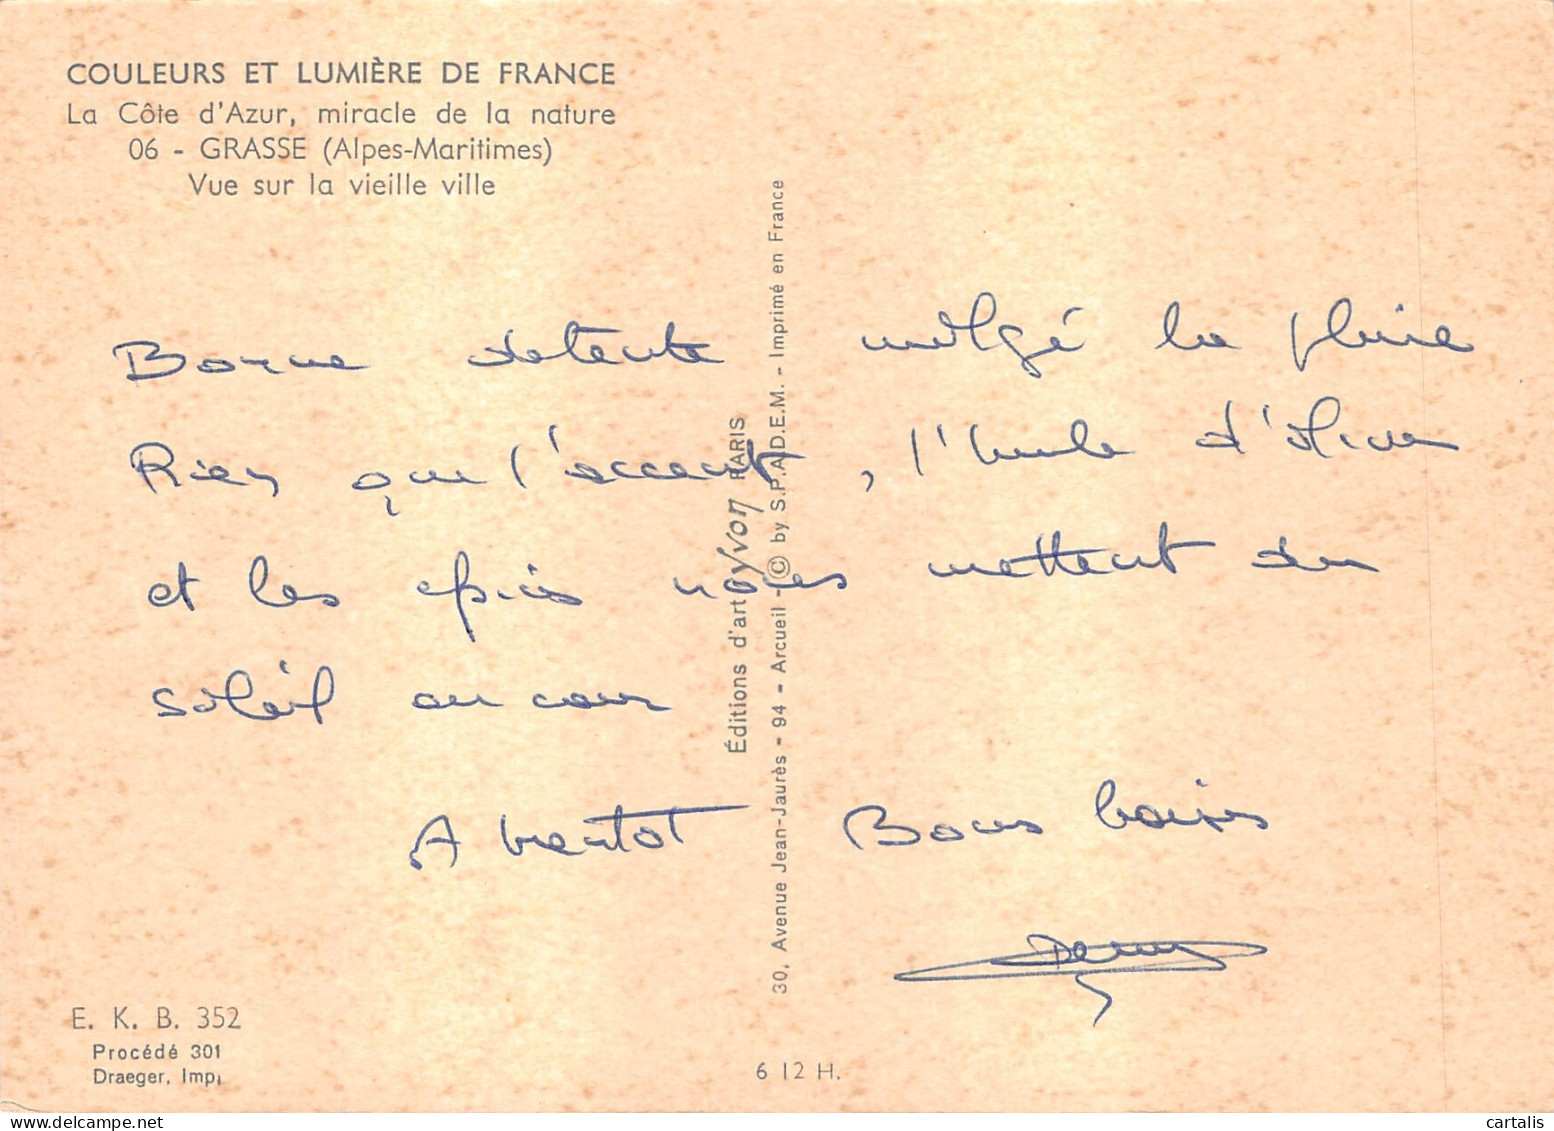 COULEURS ET LUMIÈRE DE FRANCE
La Côte d'Azur, miracle de la nature
06 - GRASSE (Alpes-Maritimes)
Vue sur la vieille ville
Bonne detente malgé la pluie
Rien que l'accent, l'huile d'olive
et les épices nous mettent du
soleil au cœur
A bientot Bons baisers
Éditions d'art yvon PARIS
30, Avenue Jean-Jaurès - 94 - Arcueil - © by S.P.A.D.E.M. - Imprimé en France
E. K. B. 352
Procédé 301
Draeger, Imp.
6 12 H.
cartalis